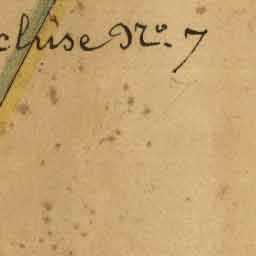 cluse N.º 7